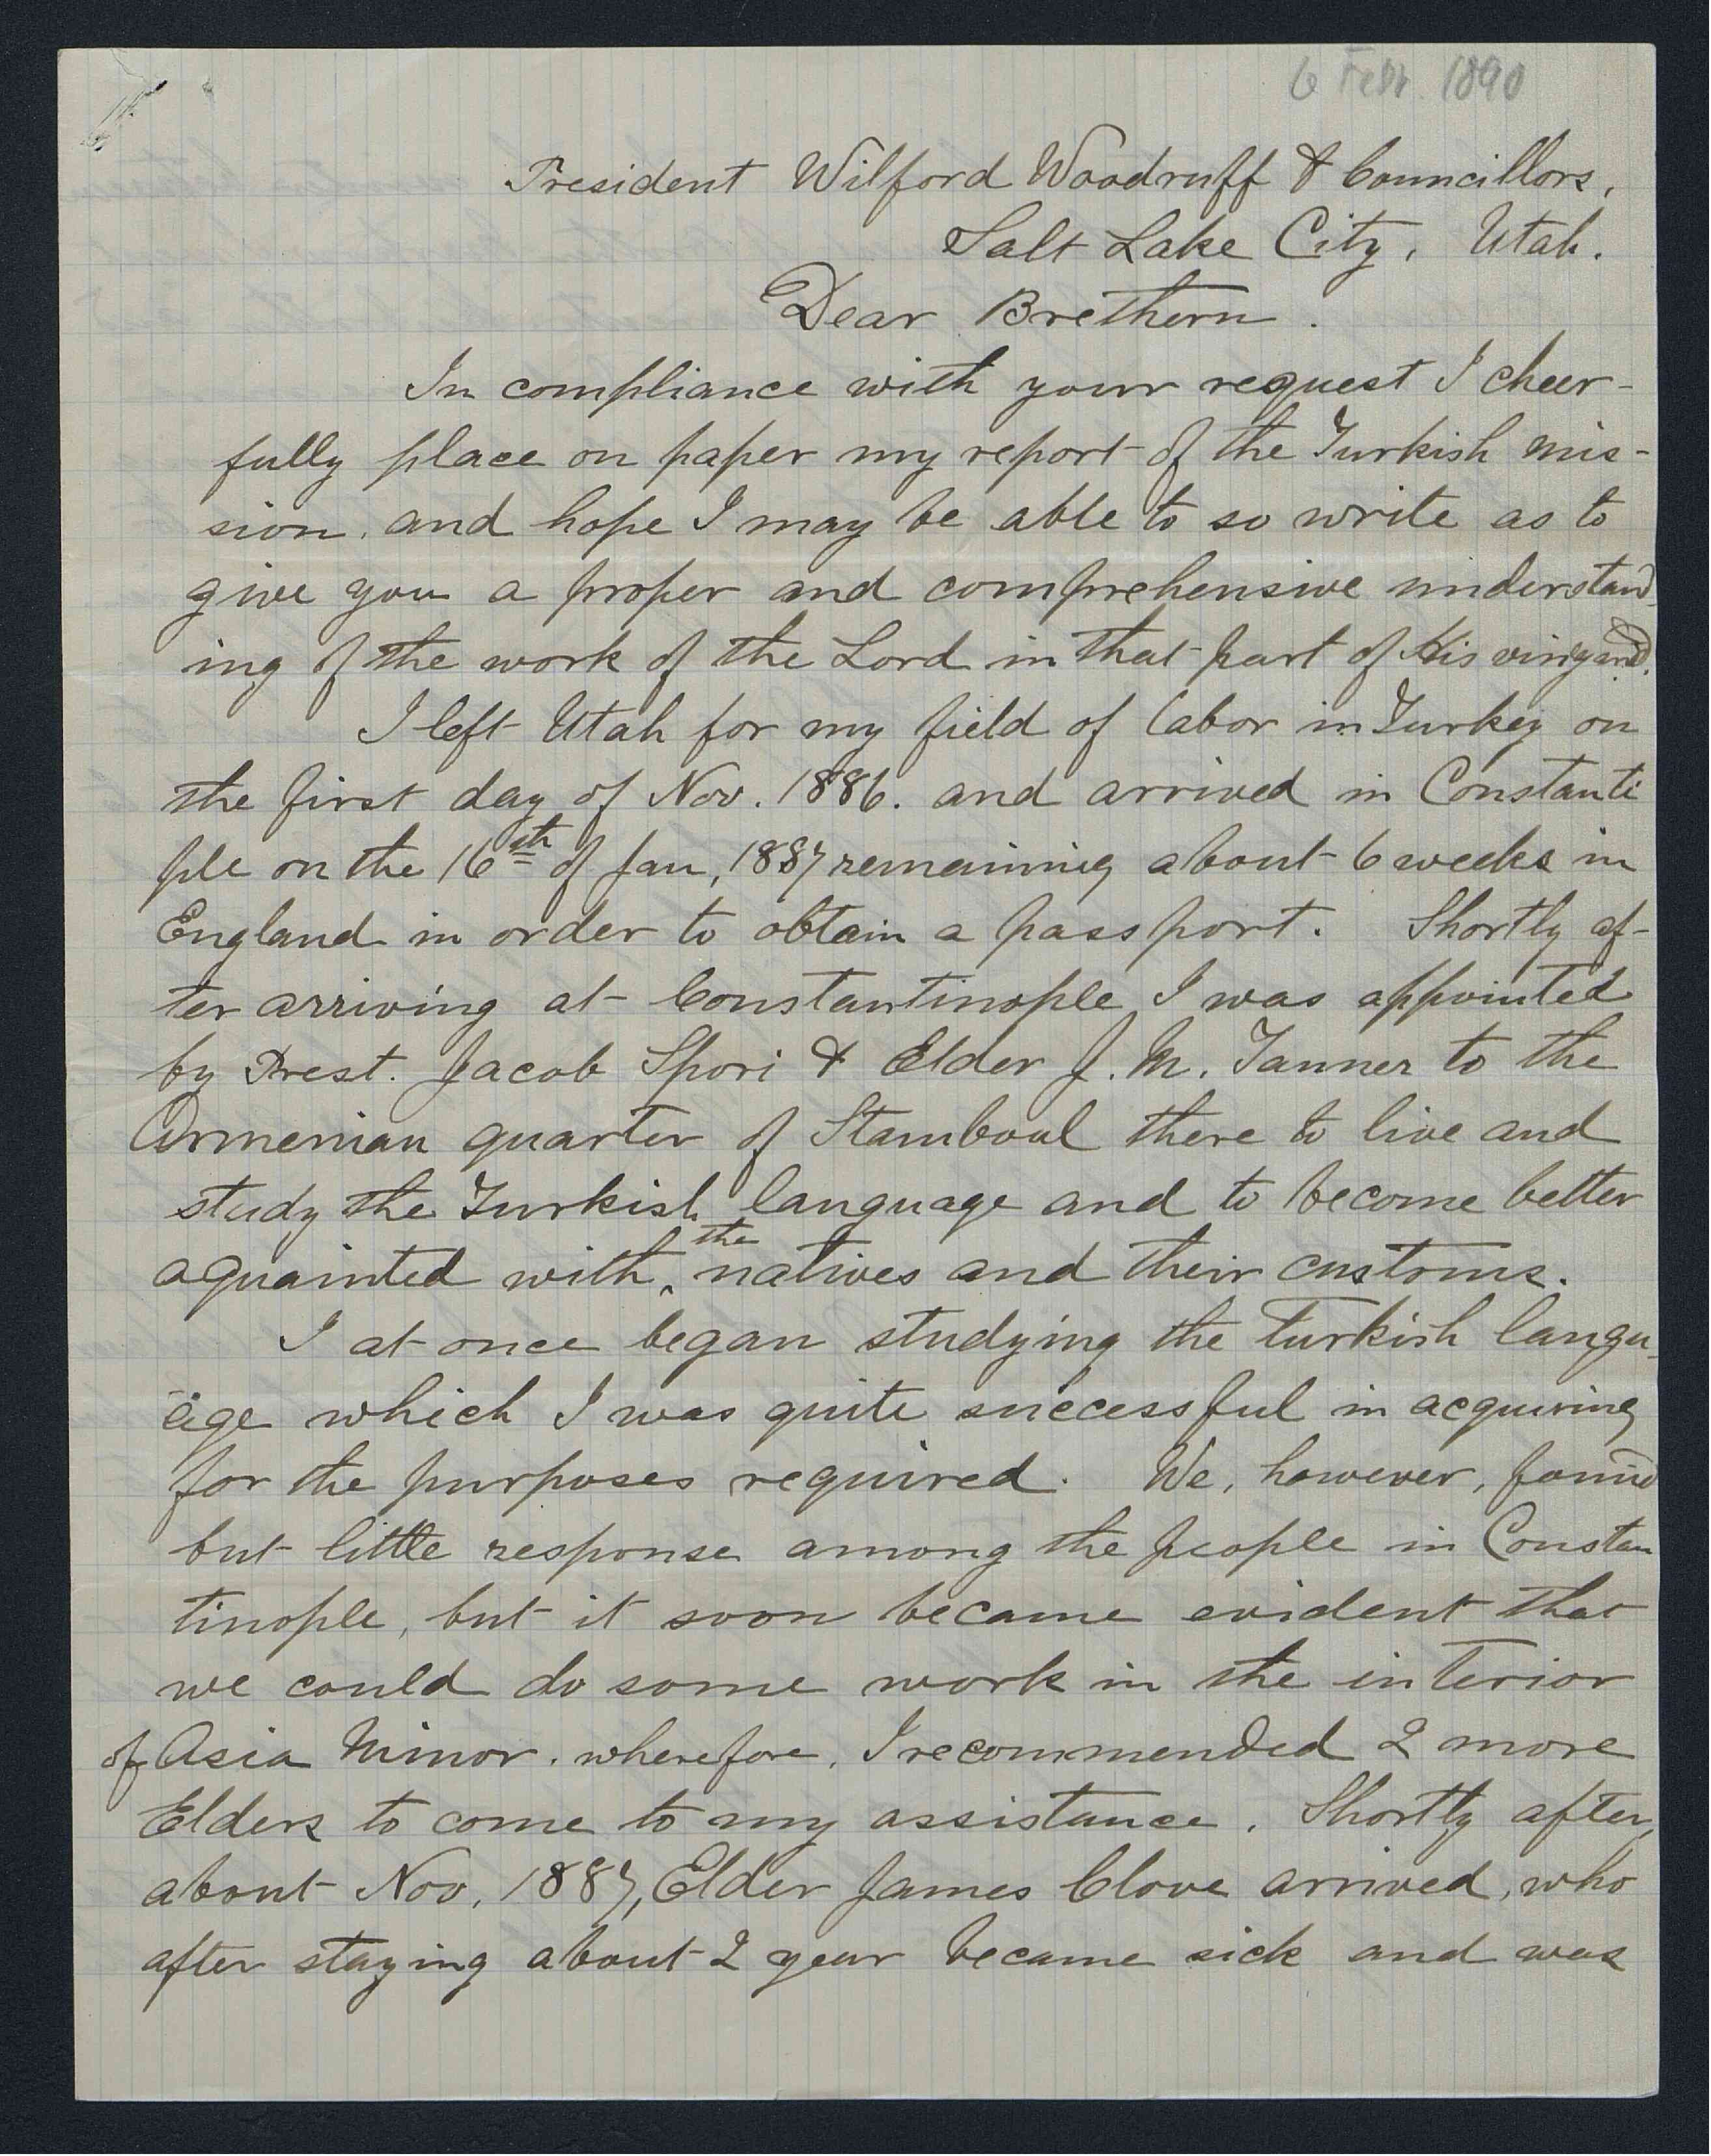 6 Febr. 1890
President Wilford Woodruff & Councillors,
Salt Lake City, Utah.
Dear Brethern.
In compliance with your request I cheer-
fully place on paper my report of the Turkish mis-
sion, and hope I may be able to so write as to
give you a proper and comprehensive understand-
ing of the work of the Lord in that part of His vinyard.
I left Utah for my field of labor in Turkey on
the first day of Nov. 1886. and arrived in Constanti
ple on the 16th of Jan, 1887 remaining about 6 weeks in
England in order to obtain a passport. Shortly af-
ter arriving at Constantinople I was appointed
by Prest. Jacob Spori & Elder J. M. Tanner to the
Armenian quarter of Stamboul there to live and
study the Turkish language and to become better
aquainted with the natives and their customs.
I at once began studying the Turkish langu-
age which I was quite successful in acquiring
for the purposes required. We, however, found
but little response among the people in Constan
tinople, but it soon became evident that
we could do some work in the interior
of Asia Minor. wherefore, I recommended 2 more
Elders to come to my assistance. Shortly after,
about Nov, 1887, Elder James Clove arrived, who
after staying about 2 year became sick and was